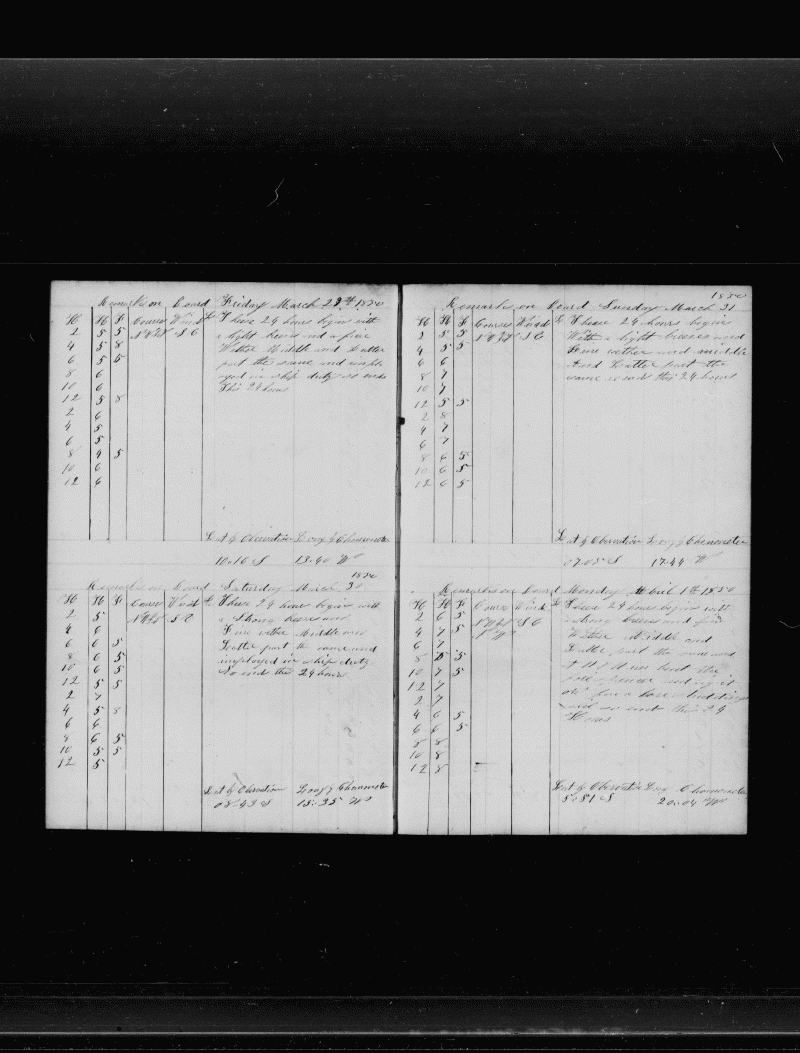 Remarks on Board Friday March 29th 1850
H K F Courses Wind L These 24 hours begins with
2 5 5 NWbW S E a light breeses and a fine
4 5 8 Wether Midth and Latter
6 5 5 part the same and imploy
8 6 oyed in ship duty so ends
10 6 This 24 hours
12 5 8
2 6
4 5
6 5
8 4 5
10 6
12 6
Lat by Obervation Long by Chenometer
10.16 S 13.40 W
1850
Remarks on Board Saturday March 30
H K F Courses Wind L These 24 hours begins with
2 5 S E a Strong breeses and
4 6 Fine wether Middle and
6 6 5 Latter part the same and
8 6 5 imployed in ship duty
10 6 5 So ends this 24 hours
12 5 5
2 7
4 5 8
6 6
8 6 5
10 5 5
12 5
Lat by Obervation Long by Chenometer
08.43 S 15.35 W
1850
Remarks on Board Sunday March 31
H K F Courses Wind L These 24 hours begins
2 5 5 S E With a light breeses and
4 5 5 Fine wether and middle
6 6 And Latter part the
8 7 same so ends this 24 hours
10 7
12 5 5
2 8
4 7
6 7
8 6 5
10 6 5
12 6 5
Lat by Obervation Long by Chenometer
07.05 S 17.44 W
Remarks on Board Monday April 1th 1850
H K F Courses Wind L These 24 hours begins with
2 6 5 S E a strong breeses and fine
4 7 5 Wether Middle and
6 7 Latter part the same and
8 5 5 at
10 7 5
12 7
2 7
4 6 5 and so ends this 24
6 6 5 Hours
8 8
10 8
12 8
Lat by Obervation Chenometer
5.51 S 20.04 W